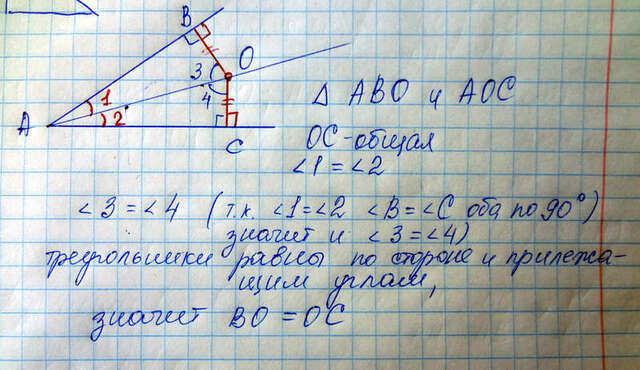 B
O
3
1
4
A
2
C
△ ABO и AOC
OC-общая
∠1=∠2
∠3=∠4 (т.к. ∠1=∠2 ∠B=∠C оба по 90°)
значит и ∠3=∠4)
треугольники равны по стороне и прилежа-
щим углам,
значит BO=OC